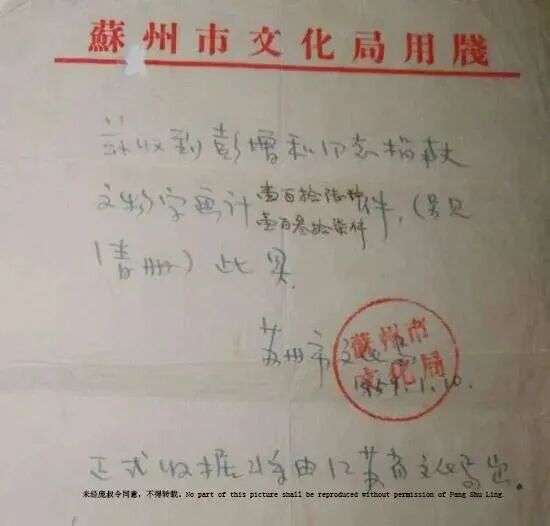 蘇州市文化局用牋
兹收到彭增和同志捐献
文物字画计壹百拾陆种
壹百叁拾柒件件,(另见
清册)此具.
苏州市文化局
蘇州市
文化局
1959.1.10.
正式收据将由江苏省文化局出.
未经庞叔令同意，不得转载。No part of this picture shall be reproduced without permission of Pang Shu Ling.